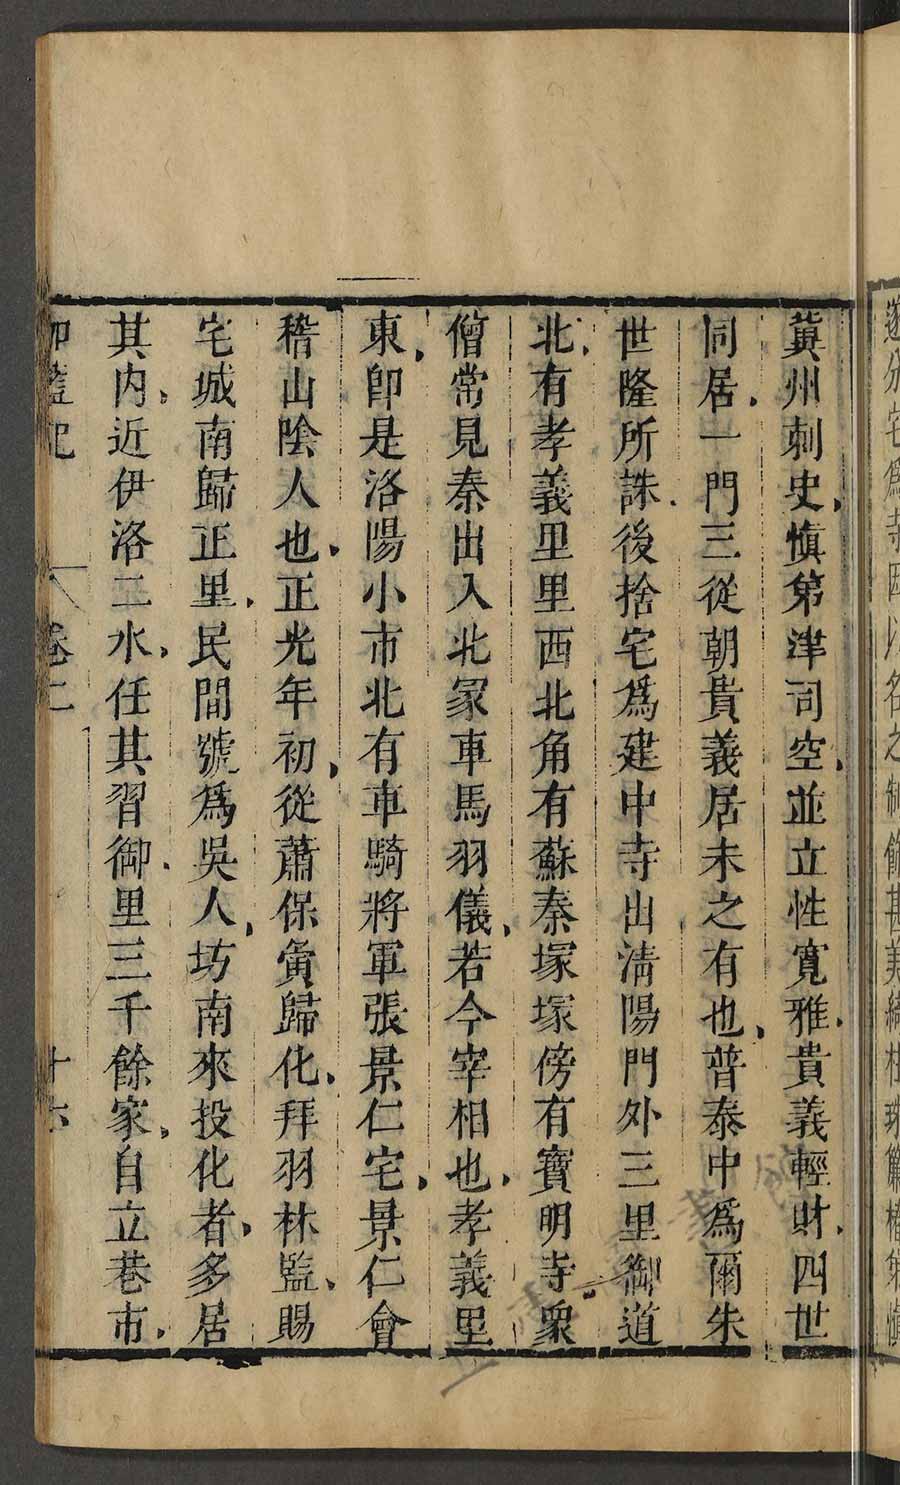 遂分宅爲寺因以名之制飾甚美綺柱珠簾椿弟愼
冀州刺史愼第津司空並立性寬雅貴義輕財四世
同居一門三從朝貴義居未之有也普泰中爲爾朱
世隆所誅後捨宅爲建中寺出淸陽門外三里御道
北有孝義里里西北角有蘇秦塚塚傍有寶明寺衆
僧常見秦出入北冡車馬羽儀若今宰相也孝義里
東卽是洛陽小市北有車騎將軍張景仁宅景仁會
稽山陰人也正光年初從蕭保夤歸化拜羽林監賜
宅城南歸正里民間號爲吳人坊南來投化者多居
其内近伊洛二水任其習御里三千餘家自立巷市
伽藍記 卷二 十六